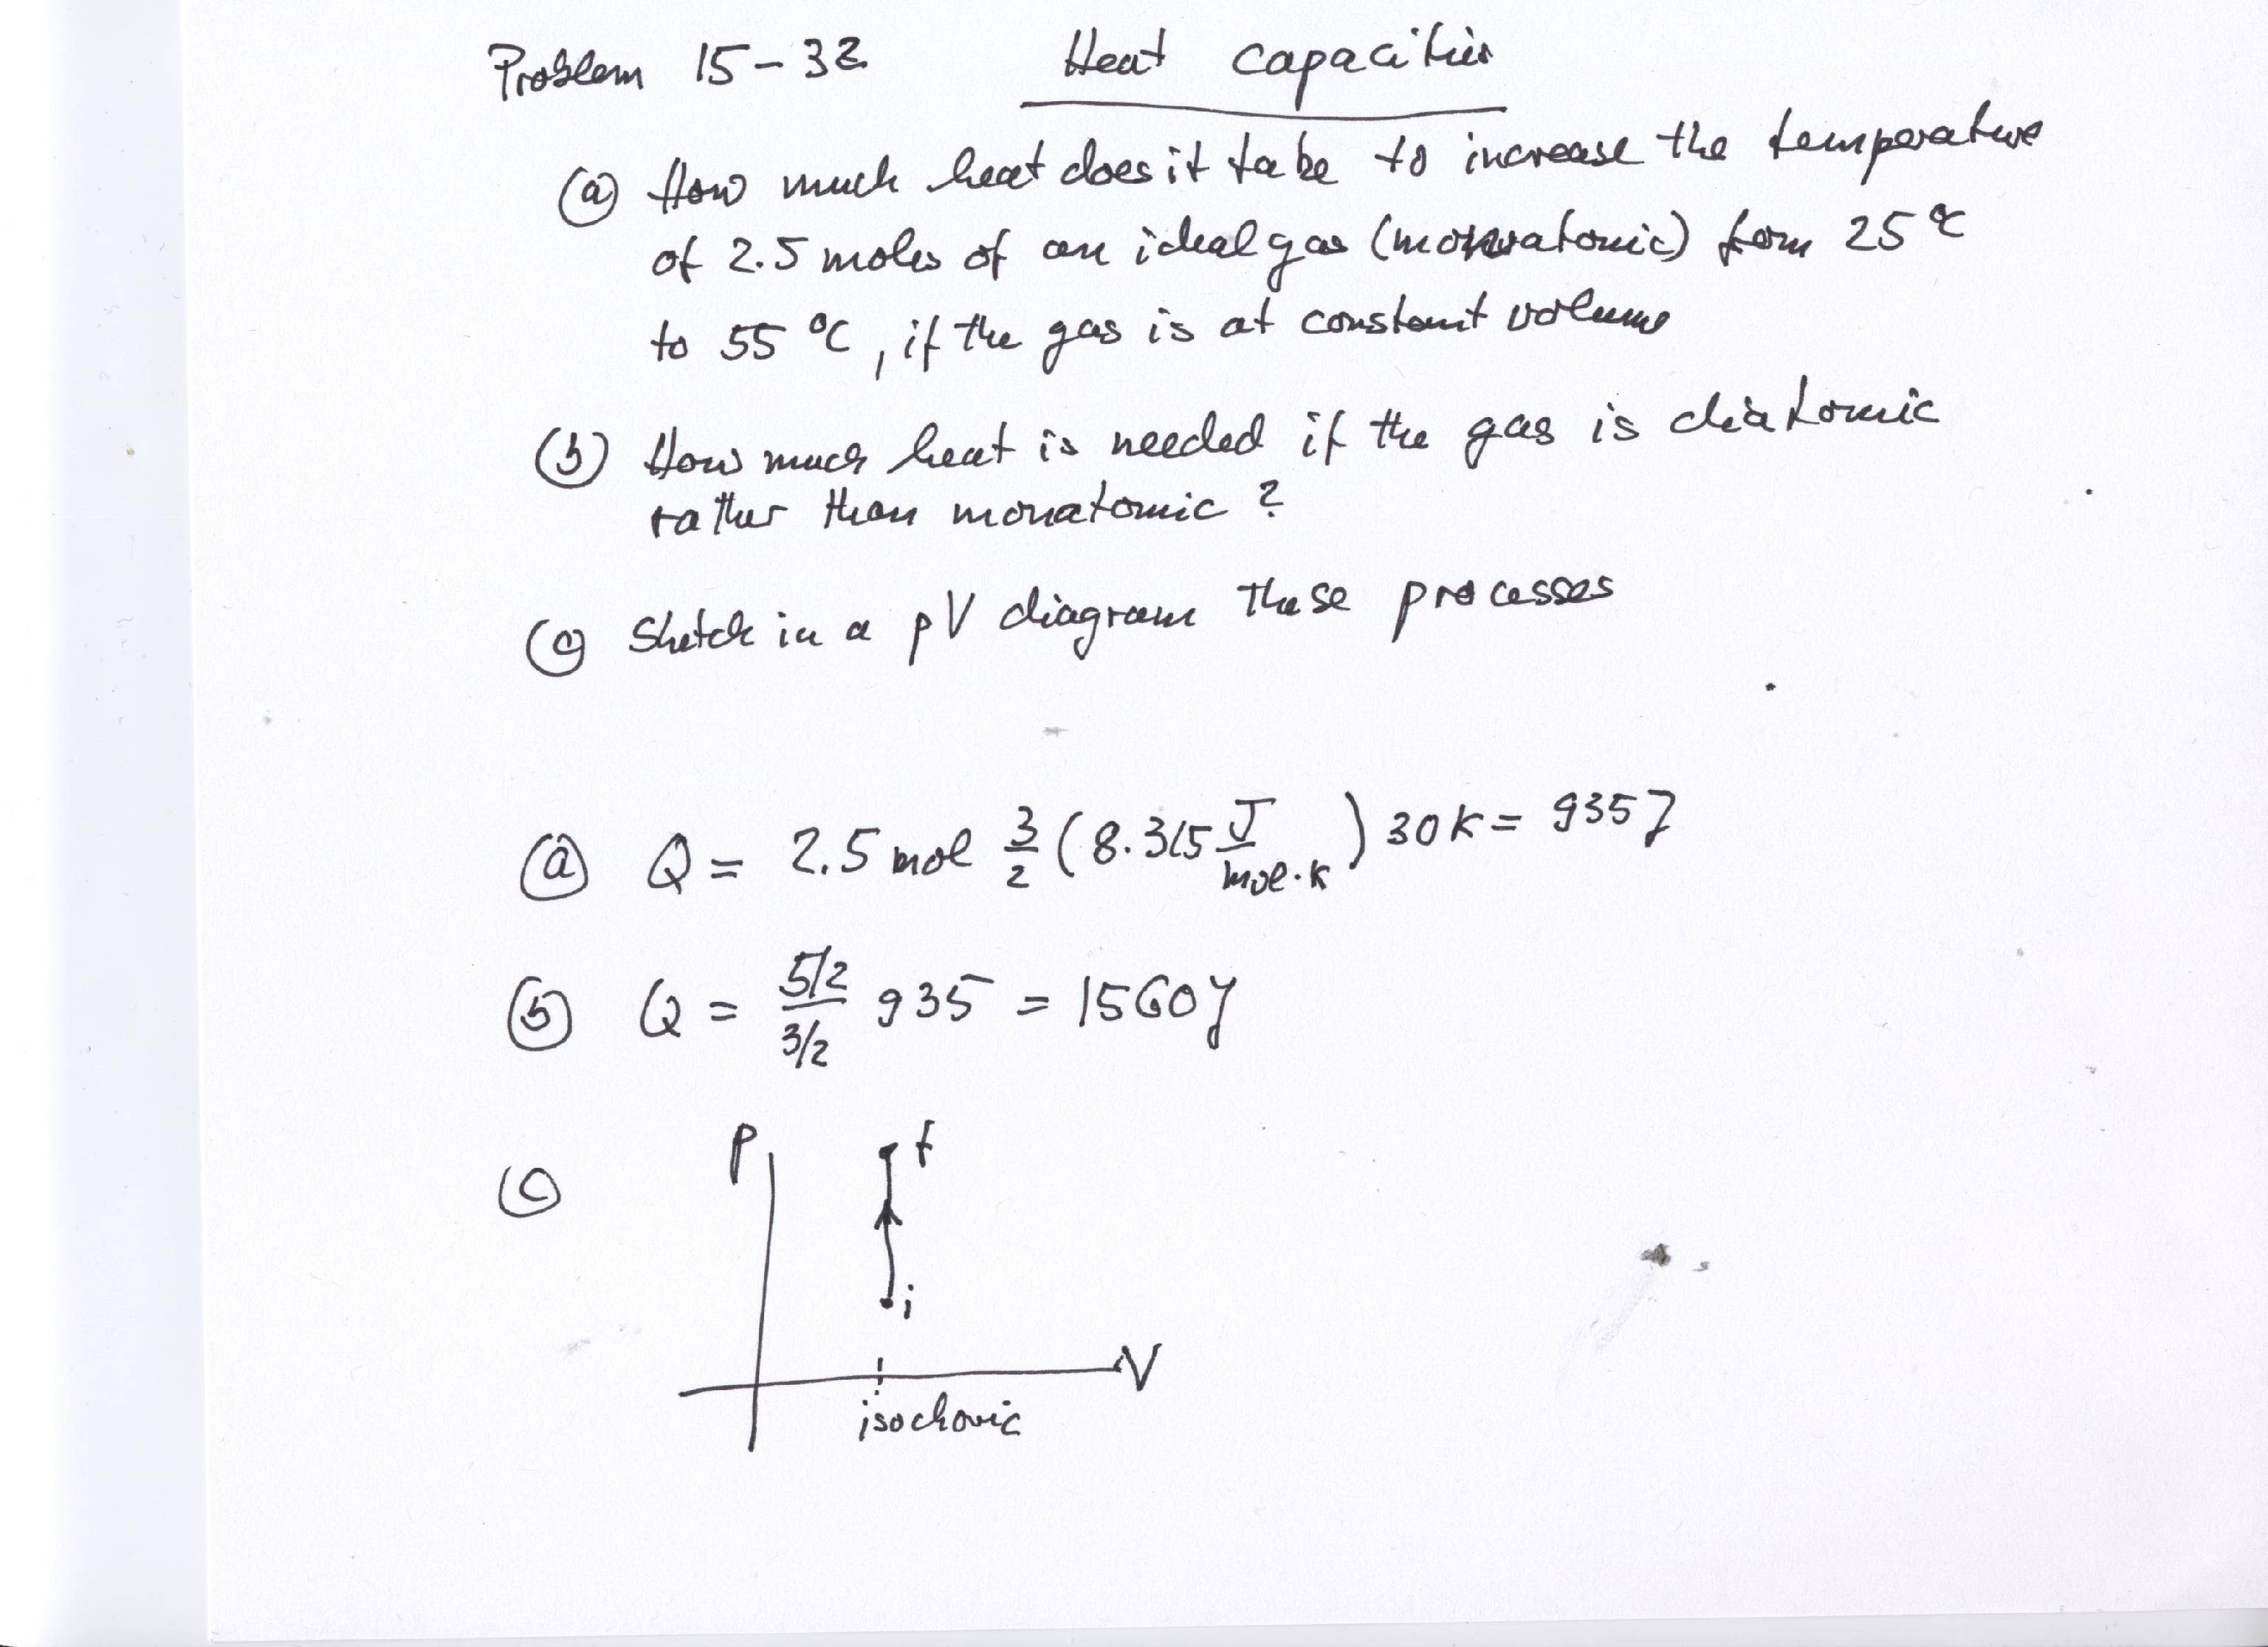 Problem 15-32 Heat capacities
(a) How much heat does it take to increase the temperature
of 2.5 moles of an ideal gas (monoatomic) from 25 °C
to 55 °C, if the gas is at constant volume
(b) How much heat is needed if the gas is diatomic
rather than monatomic ?
(c) Sketch in a pV diagram these processes
(a) Q = 2.5 mol 3/2 (8.315 J/mol·K) 30K = 935J
(b) Q = 5/2 / 3/2 935 = 1560J
(c) P f
i
V
isochoric